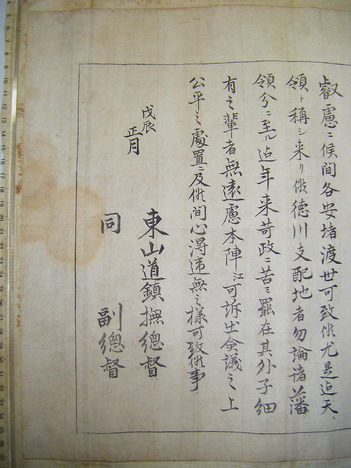 叡慮ニ候間各安堵渡世可致候尤是迄天
領ト称シ来リ候徳川支配地者勿論諸藩
領分ニ至ル迄年来苛政ニ苦ミ罷在其外子細
有之輩者無遠慮本陣江可訴出僉議之上
公平之處置ニ及候間心得違無之様可致候事
戊辰
正月
東山道鎮撫總督
同 副總督